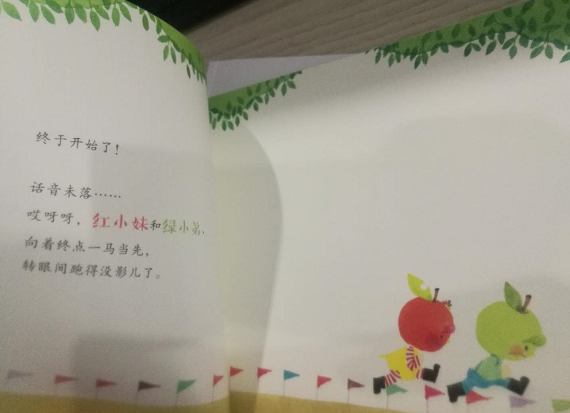 终于开始了！
话音未落……
哎呀呀，红小妹和绿小弟，
向着终点一马当先，
转眼间跑得没影儿了。